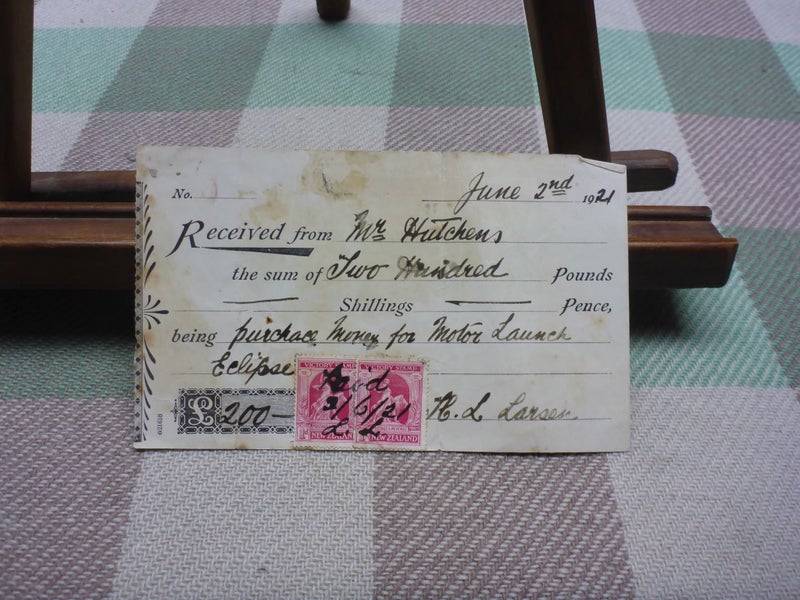 No. June 2nd 1921
Received from Mr Hutchens
the sum of Two Hundred Pounds
Shillings Pence,
being purchace Money for Motor Launch
Eclipse
£ 200— H. L Larsen
VICTORY STAMP VICTORY STAMP
NEW ZEALAND NEW ZEALAND